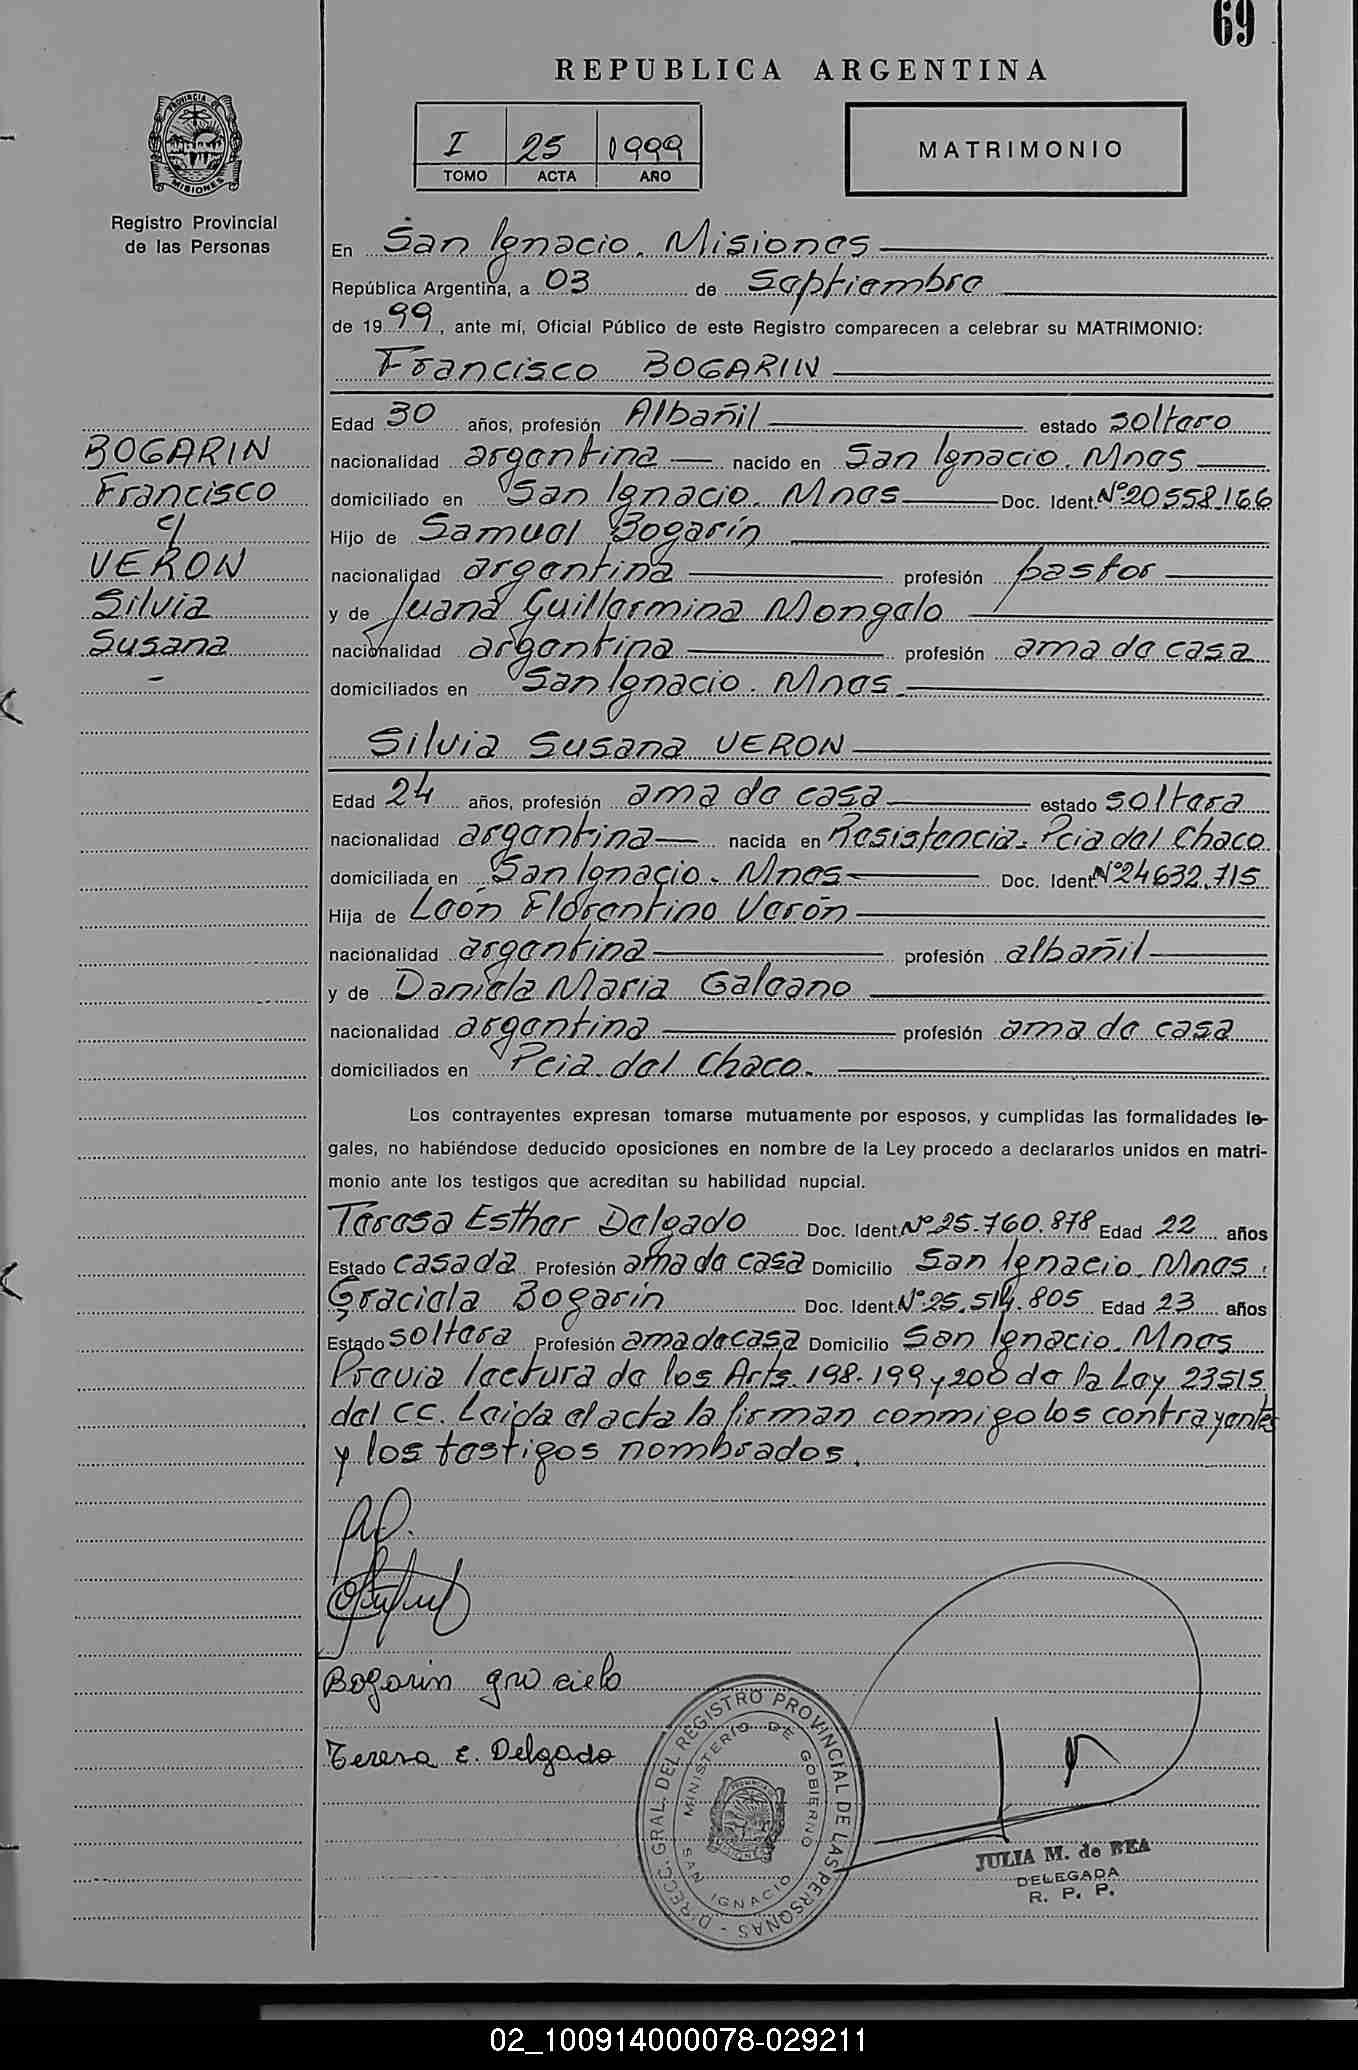 69
REPUBLICA ARGENTINA
I 25 1999
TOMO ACTA AÑO
MATRIMONIO
PROVINCIA DE MISIONES
Registro Provincial
de las Personas
En San Ignacio. Misiones
República Argentina, a 03 de Septiembre
de 1999, ante mí, Oficial Público de este Registro comparecen a celebrar su MATRIMONIO:
Francisco BOGARIN
Edad 30 años, profesión Albañil estado soltero
BOGARIN
Francisco
c/
VERON
Silvia
Susana
nacionalidad argentina nacido en San Ignacio. Mnes
domiciliado en San Ignacio. Mnes Doc. Ident. Nº20558.166
Hijo de Samuel Bogarín
nacionalidad argentina profesión pastor
y de Juana Guillermina Mongelo
nacionalidad argentina profesión ama de casa
domiciliados en San Ignacio. Mnes.
Silvia Susana VERON
Edad 24 años, profesión ama de casa estado soltera
nacionalidad argentina nacida en Resistencia. Pcia del Chaco
domiciliada en San Ignacio. Mnes Doc. Ident. Nº24632.715
Hija de León Florentino Verón
nacionalidad argentina profesión albañil
y de Daniela Maria Galeano
nacionalidad argentina profesión ama de casa
domiciliados en Pcia del Chaco.
Los contrayentes expresan tomarse mutuamente por esposos, y cumplidas las formalidades le-
gales, no habiéndose deducido oposiciones en nombre de la Ley procedo a declararlos unidos en matri-
monio ante los testigos que acreditan su habilidad nupcial.
Teresa Esther Delgado Doc. Ident. Nº25.760.878 Edad 22 años
Estado casada Profesión ama de casa Domicilio San Ignacio. Mnes.
Graciela Bogarin Doc. Ident. Nº25.514.805 Edad 23 años
Estado soltera Profesión ama de casa Domicilio San Ignacio. Mnes
Previa lectura de los Arts. 198.199 y 200 de la Ley 23515
del CC. Leida el acta la firman conmigo los contrayentes
y los testigos nombrados.
Bogarin gracielo
Teresa E. Delgado
DIRECC. GRAL. DEL REGISTRO PROVINCIAL DE LAS PERSONAS
MINISTERIO DE GOBIERNO
SAN IGNACIO
JULIA M. de BEA
DELEGADA
R. P. P.
02_100914000078-029211